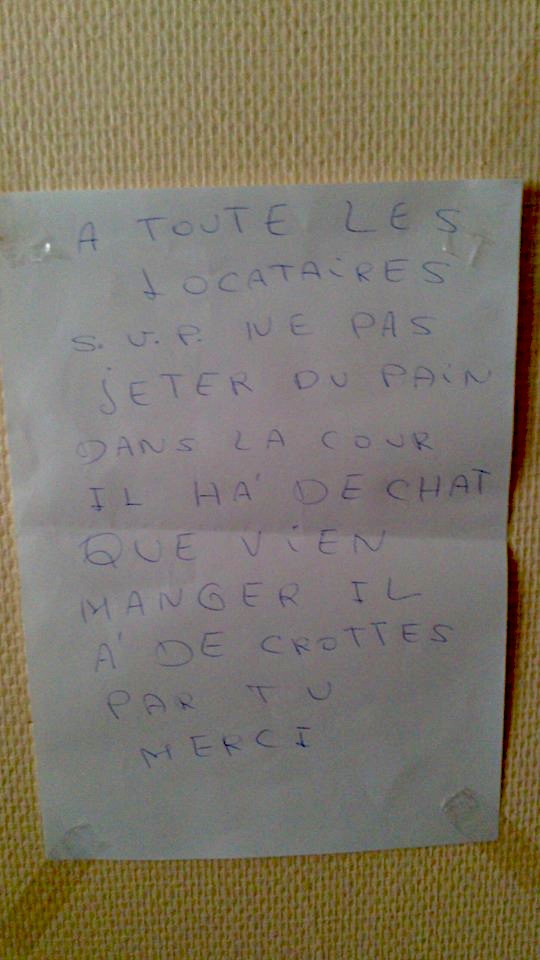 A TOUTE LES
LOCATAiRES
S.V.P. NE PAS
jETER DU PAiN
DANS LA COUR
IL HA' DE CHAT
QUE ViEN
MANGER IL
A' DE CROTTES
PAR TU
MERCI